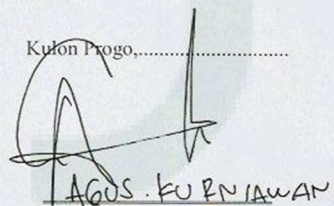 Kulon Progo,..............................
AGUS. KURNIAWAN